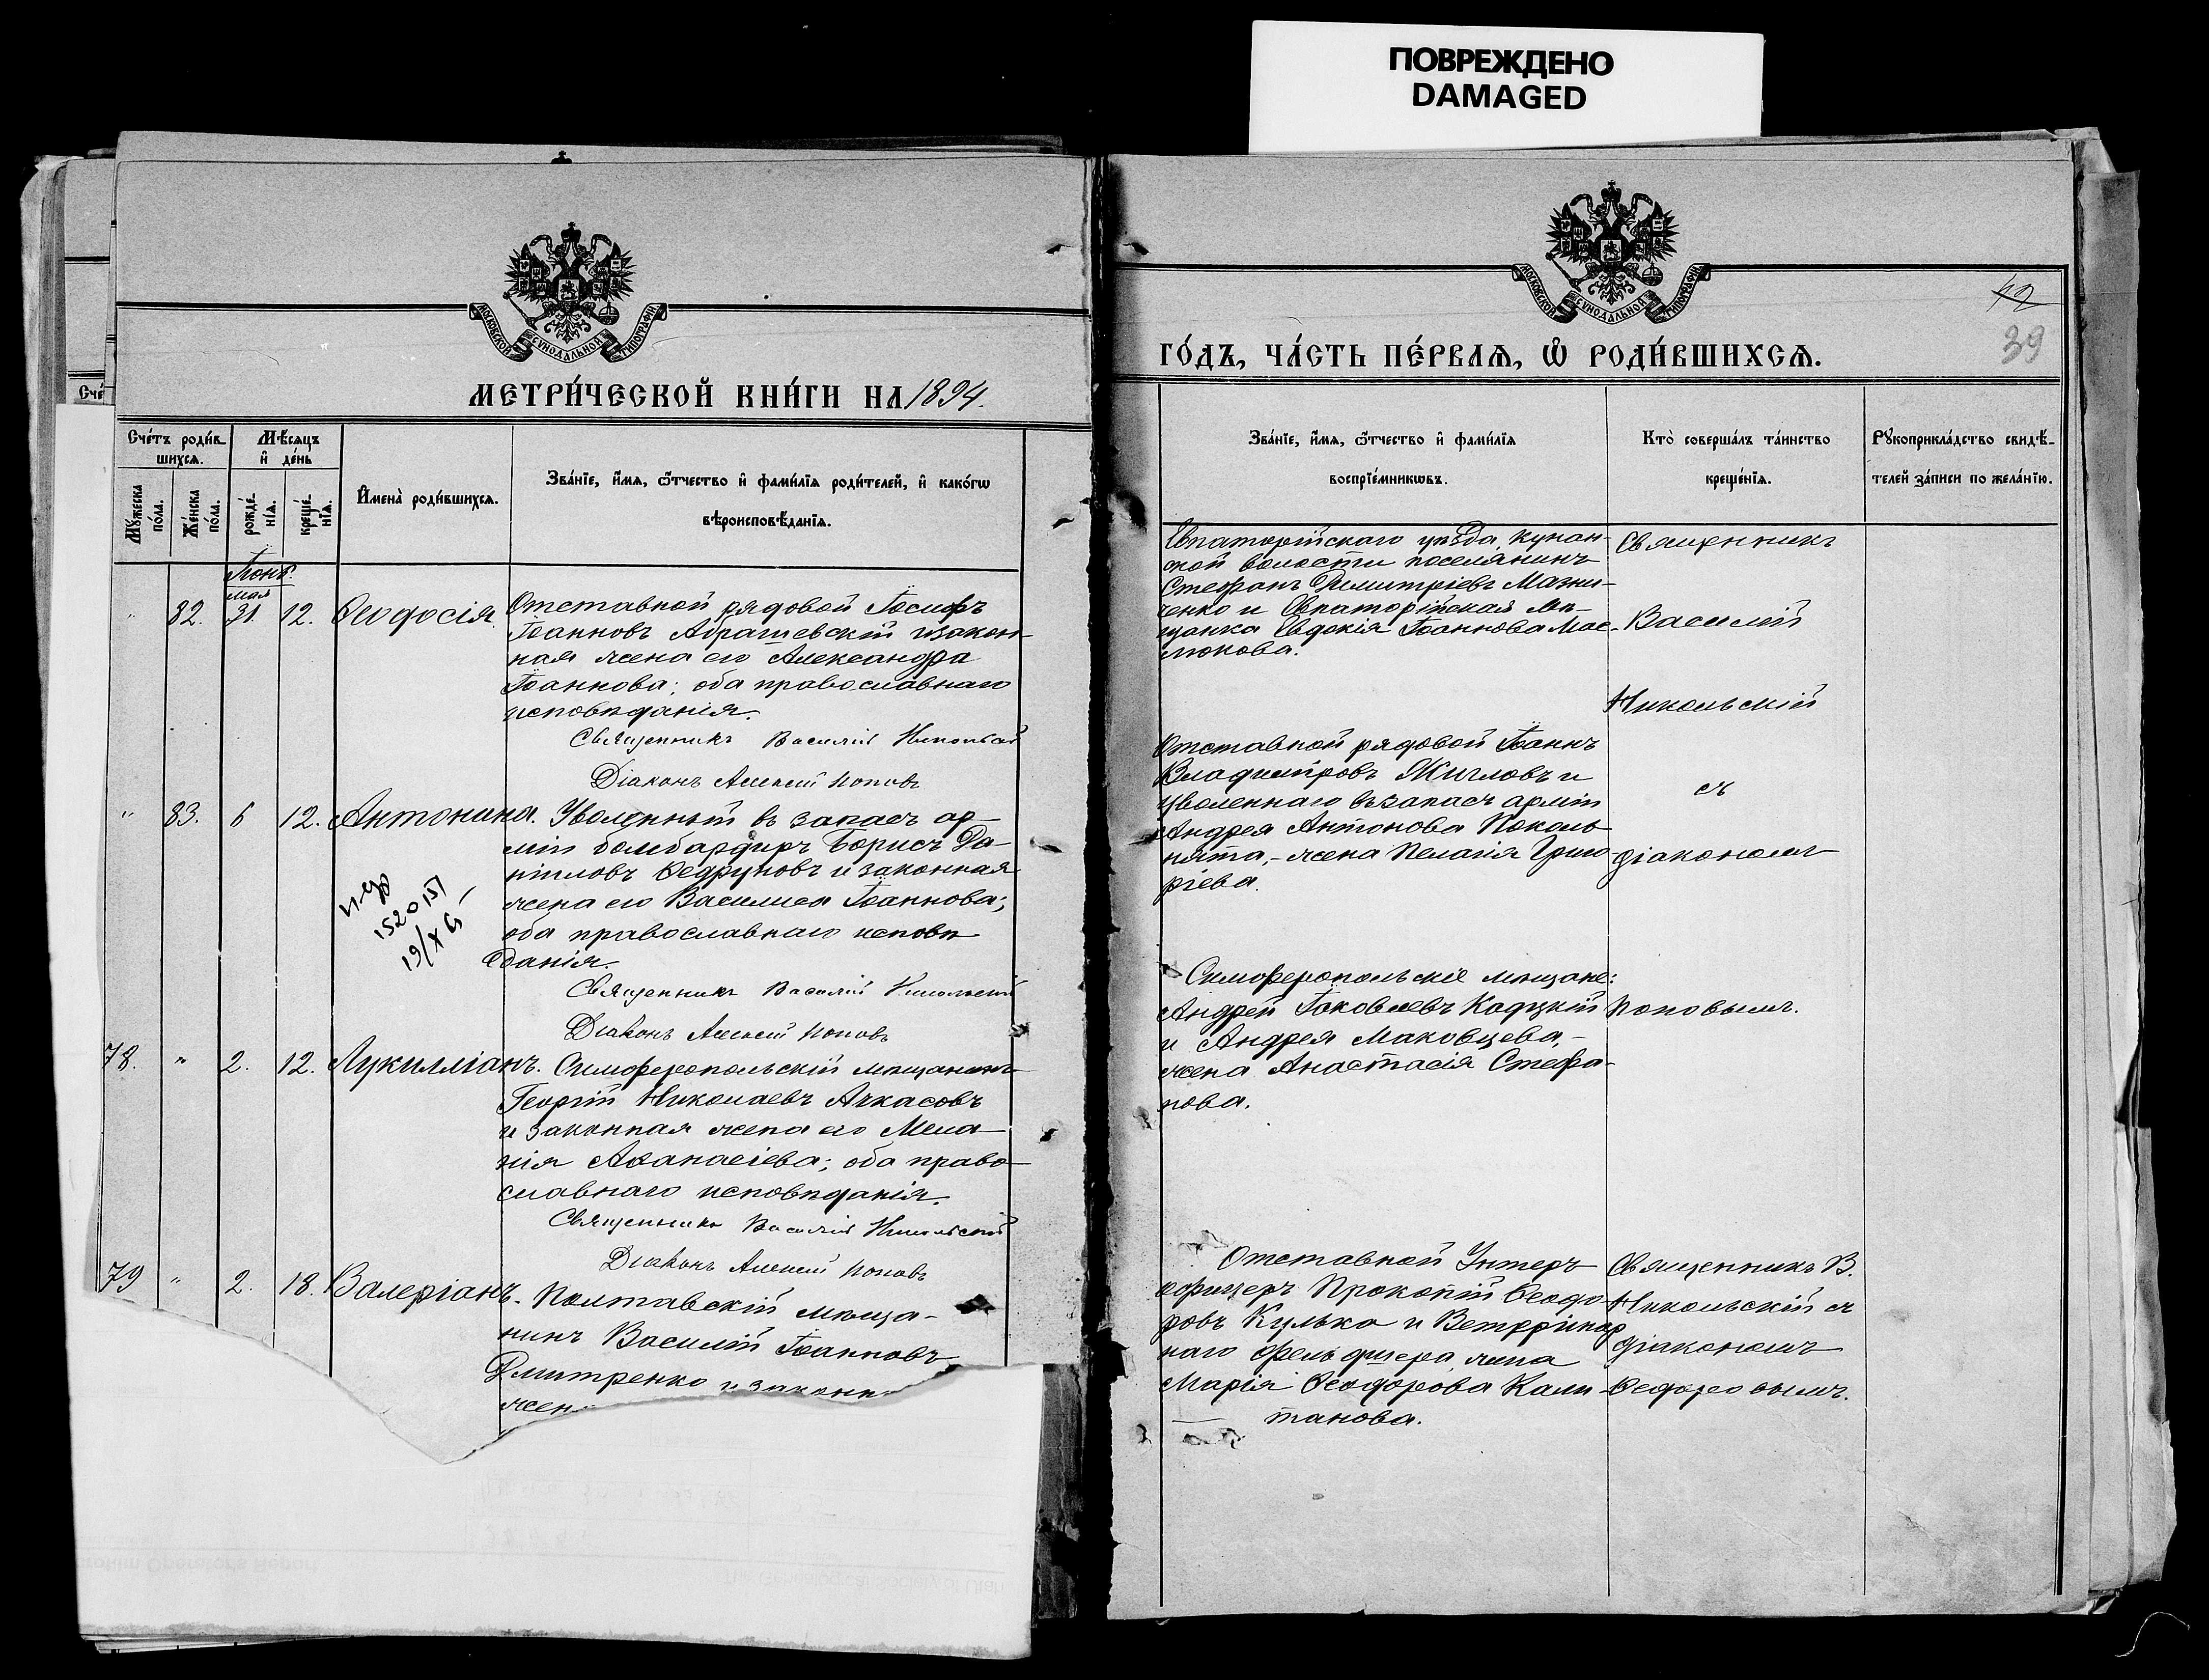 ПОВРЕЖДЕНО
DAMAGED
МОСКОВСКОЙ СУНОДАЛЬНОЙ ТИПОГРАФІИ
МЕТРИ́ЧЕСКОЙ КНИ́ГИ НА 1894.
Сче́тъ роди́в
шихсѧ.
Мѣ́сѧцъ
и҆ де́нь
Мꙋ́жеска
по́ла.
Же́нска
по́ла.
рожде́
нїѧ.
креще́
нїѧ.
И҆мена̀ роди́вшихсѧ.
Зва́нїе, и҆́мѧ, ѻ҆́тчество и҆ фами́лїѧ роди́телей, и҆ како́гѡ
вѣроисповѣ́данїѧ.
Іюнь.
мая
" 82. 31. 12. Ѳеодосія.
Отставной рядовой Іосифъ
Іоанновъ Абрашевскій и закон-
ная жена его Александра
Іоаннова; оба православнаго
исповѣданія.
Священникъ Василій Никольскій
Діаконъ Алексій Поповъ
" 83. 6 12. Антонина.
Уволенный въ запасъ ар-
міи бомбардиръ Борисъ Да-
ніиловъ Ѳедруновъ и законная
жена его Василиса Іоаннова;
оба православнаго исповѣ
данія.
Священникъ Василій Никольскій
Діаконъ Алексій Поповъ
78. " 2. 12. Лукилліанъ.
Симферопольскій мѣщанинъ
Георгій Николаевъ Ачкасовъ
и законная жена его Мела-
нія Аѳанасіева; оба право-
славнаго исповѣданія.
Священникъ Василій Никольскій
Діаконъ Алексій Поповъ
79 " 2. 18. Валеріанъ.
Полтавскій мѣща-
нинъ Василій Іоанновъ
Дмитренко и законн
жен
42
39
МОСКОВСКОЙ СУНОДАЛЬНОЙ ТИПОГРАФІИ
ГО́ДЪ, ЧА́СТЬ ПЕ́РВАѦ, Ѡ҆ РОДИ́ВШИХСѦ.
Зва́нїе, и҆́мѧ, ѻ҆́тчество и҆ фами́лїѧ
воспрїе́мникѡвъ.
Кто̀ соверша́лъ та́инство
креще́нїѧ.
Рꙋкоприкла́дство свидѣ́-
телей за́писи по жела́нїю.
Евпаторійскаго уѣзда, Кунан-
ской волости поселянинъ
Стефанъ Димитріевъ Мазни-
ченко и Евпаторійская мѣ-
щанка Евдокія Іоаннова Мас-
люкова.
Отставной рядовой Іоаннъ
Владиміровъ Жигловъ и
уволеннаго въ запасъ арміи
Андрея Антонова Поколь
нята,- жена Пелагія Григо-
ріева.
Симферопольскіе мѣщане:
Андрей Іаковлевъ Кафцкій
и Андрея Маковцева,-
жена Анастасія Стефа-
нова.
Отставной Унтеръ
офицеръ Прокопій Ѳеодо-
ровъ Кулько и Ветеринар
наго фельдшера жена
Марія Ѳеодорова Капи-
танова.
Священникъ
Василій
Никольскій
съ
діакономъ
Поповымъ.
Священникъ В.
Никольскій съ
діакономъ
Ѳедоровымъ.